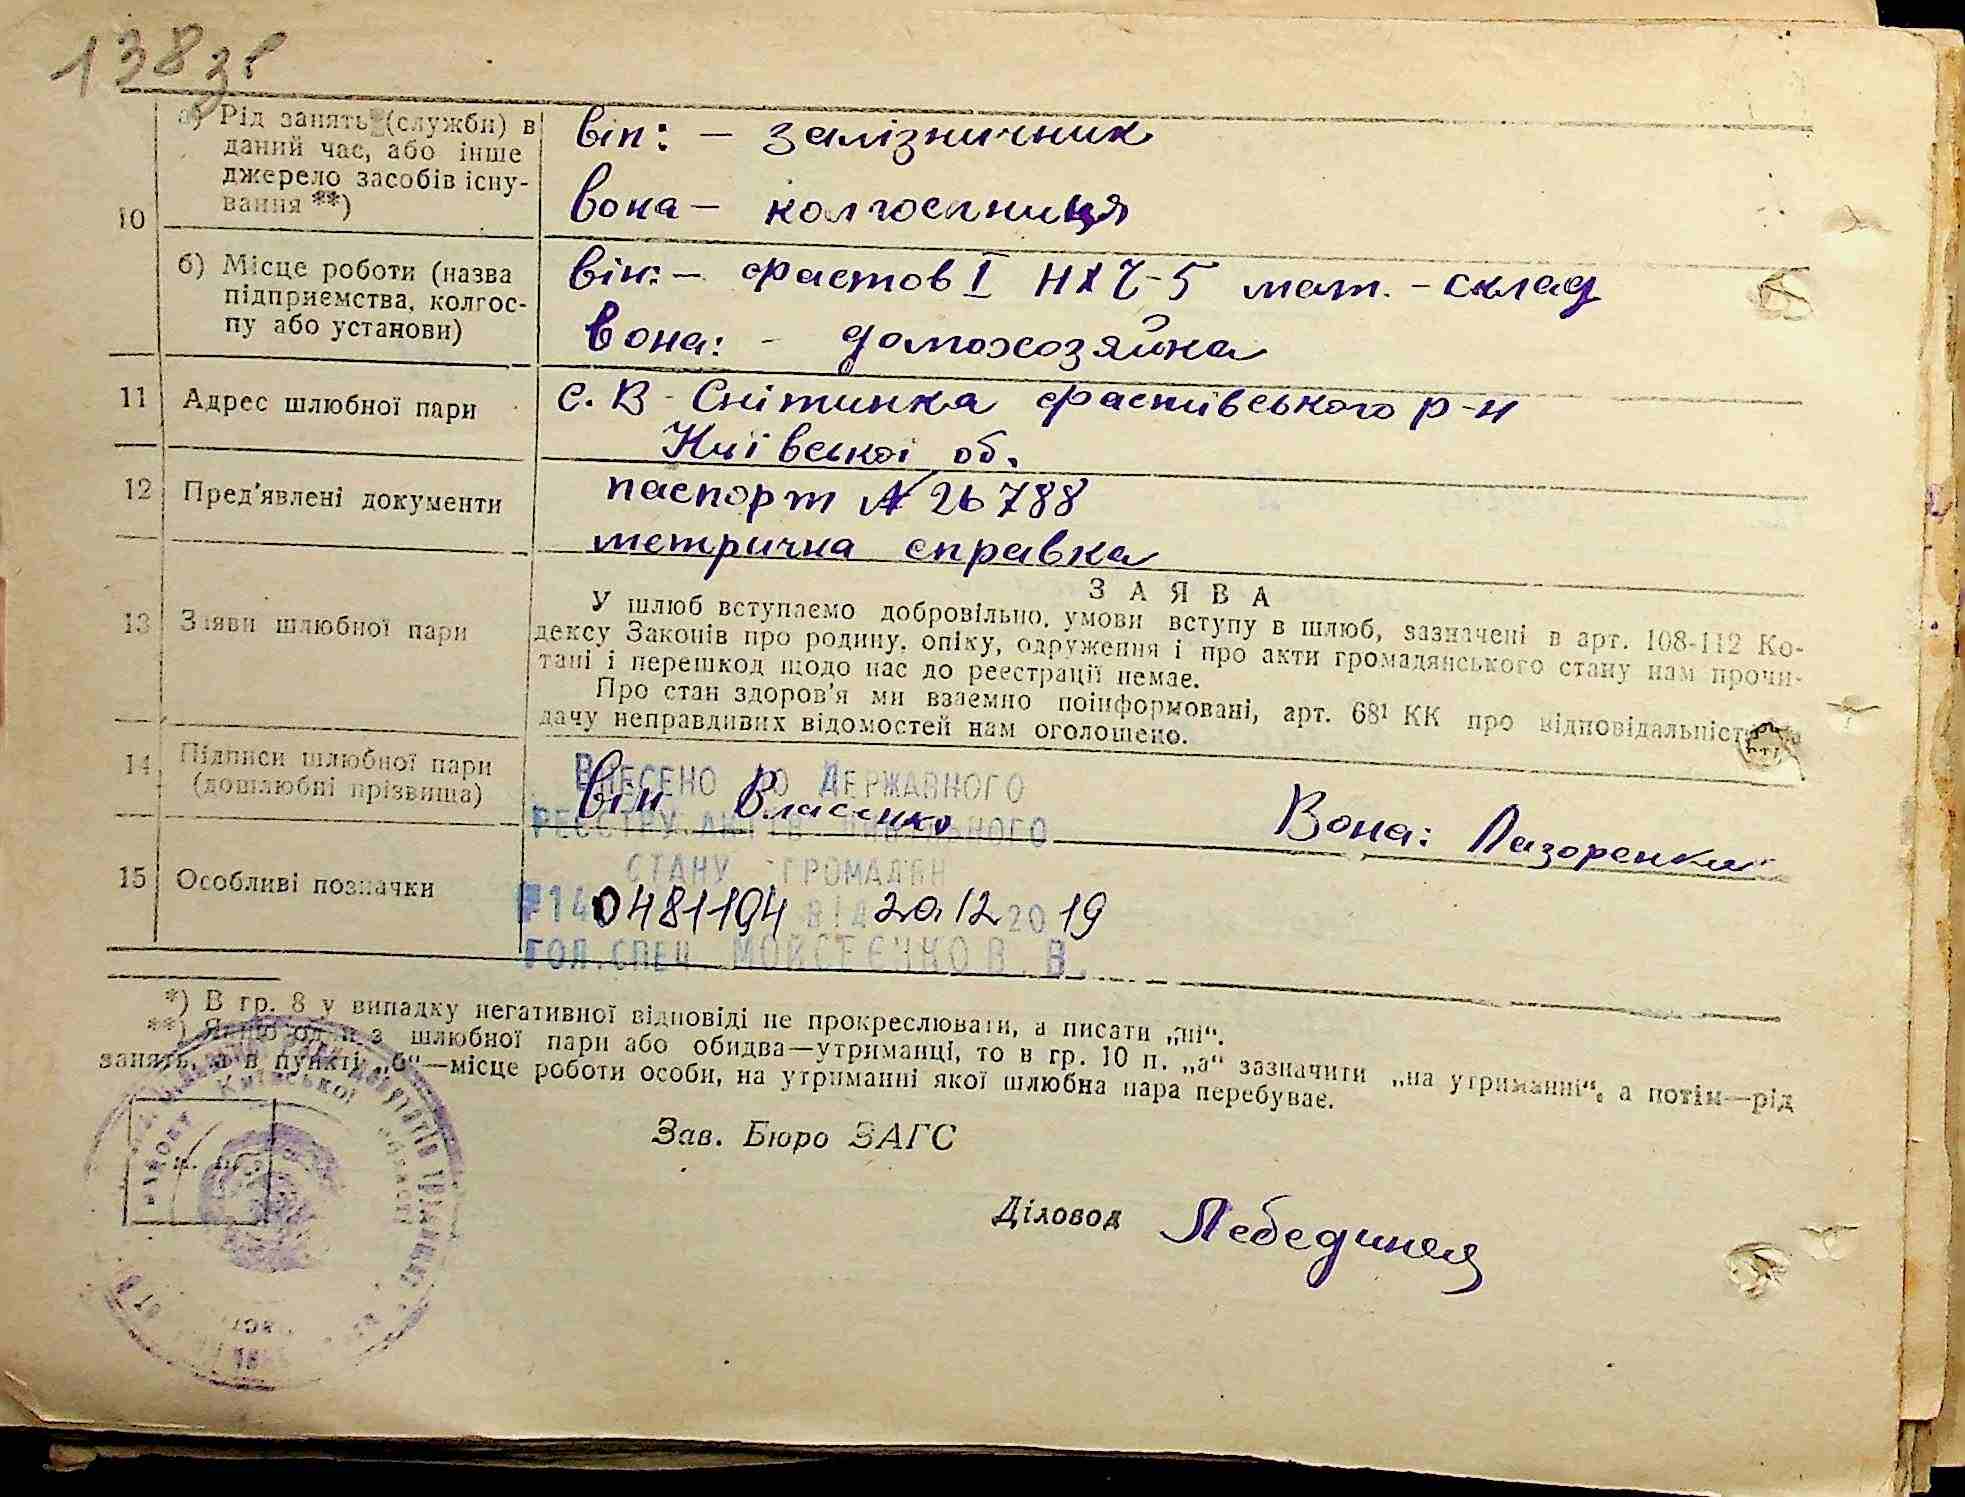 138зв
10
а) Рід занять (служби) в
даний час, або інше
джерело засобів існу-
вання **)
він: – залізничник
вона – колгоспниця
б) Місце роботи (назва
підприємства, колгос-
пу або установи)
він: – Фастов І НХЧ-5 мат. – склад
вона: – домохозяйка
11 Адрес шлюбної пари
с. В-Снітинка Фастівського р-н
Київської об.
12 Пред'явлені документи
паспорт № 26788
метрична справка
13 Заяви шлюбної пари
ЗАЯВА
У шлюб вступаємо добровільно, умови вступу в шлюб, зазначені в арт. 108-112 Ко-
дексу Законів про родину, опіку, одруження і про акти громадянського стану нам прочи-
тані і перешкод щодо нас до реєстрації немає.
Про стан здоров'я ми взаємно поінформовані, арт. 68¹ КК про відповідальність
дачу неправдивих відомостей нам оголошено.
14 Підписи шлюбної пари
(дошлюбні прізвища)
він Власенко Вона: Лазоренко
15 Особливі позначки
Внесено до Державного
реєстру актів цивільного
стану громадян
0481194 від 20.12 2019
Гол.спец. Мойсеєнко В.В.
*) В гр. 8 у випадку негативної відповіді не прокреслювати, а писати „ні“.
**) Якщо один з шлюбної пари або обидва—утриманці, то в гр. 10 п. „а“ зазначити „на утриманні“, а потім—рід
занять, а в пункті „б“—місце роботи особи, на утриманні якої шлюбна пара перебуває.
Київської
Зав. Бюро ЗАГС
Діловод Лебединая